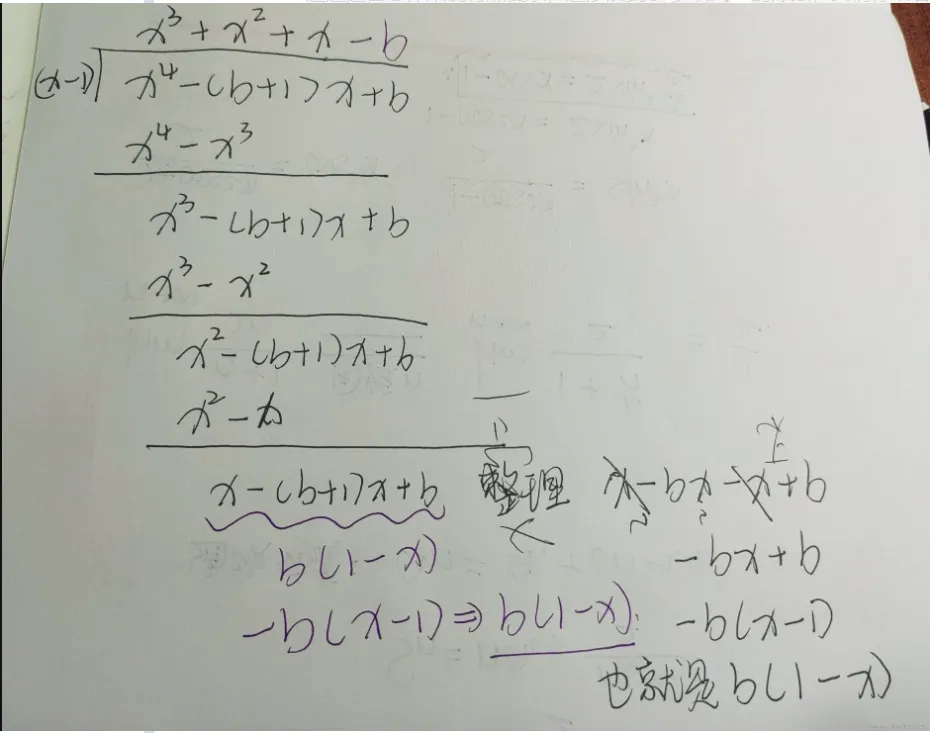 x³ + x² + x - b
(x-1) x⁴ - (b+1)x + b
x⁴ - x³
x³ - (b+1)x + b
x³ - x²
x² - (b+1)x + b
x² - x
x - (b+1)x + b 整理 x - bx - x + b
b(1-x) -bx + b
-b(x-1) ⇒ b(1-x) -b(x-1)
也就是 b(1-x)